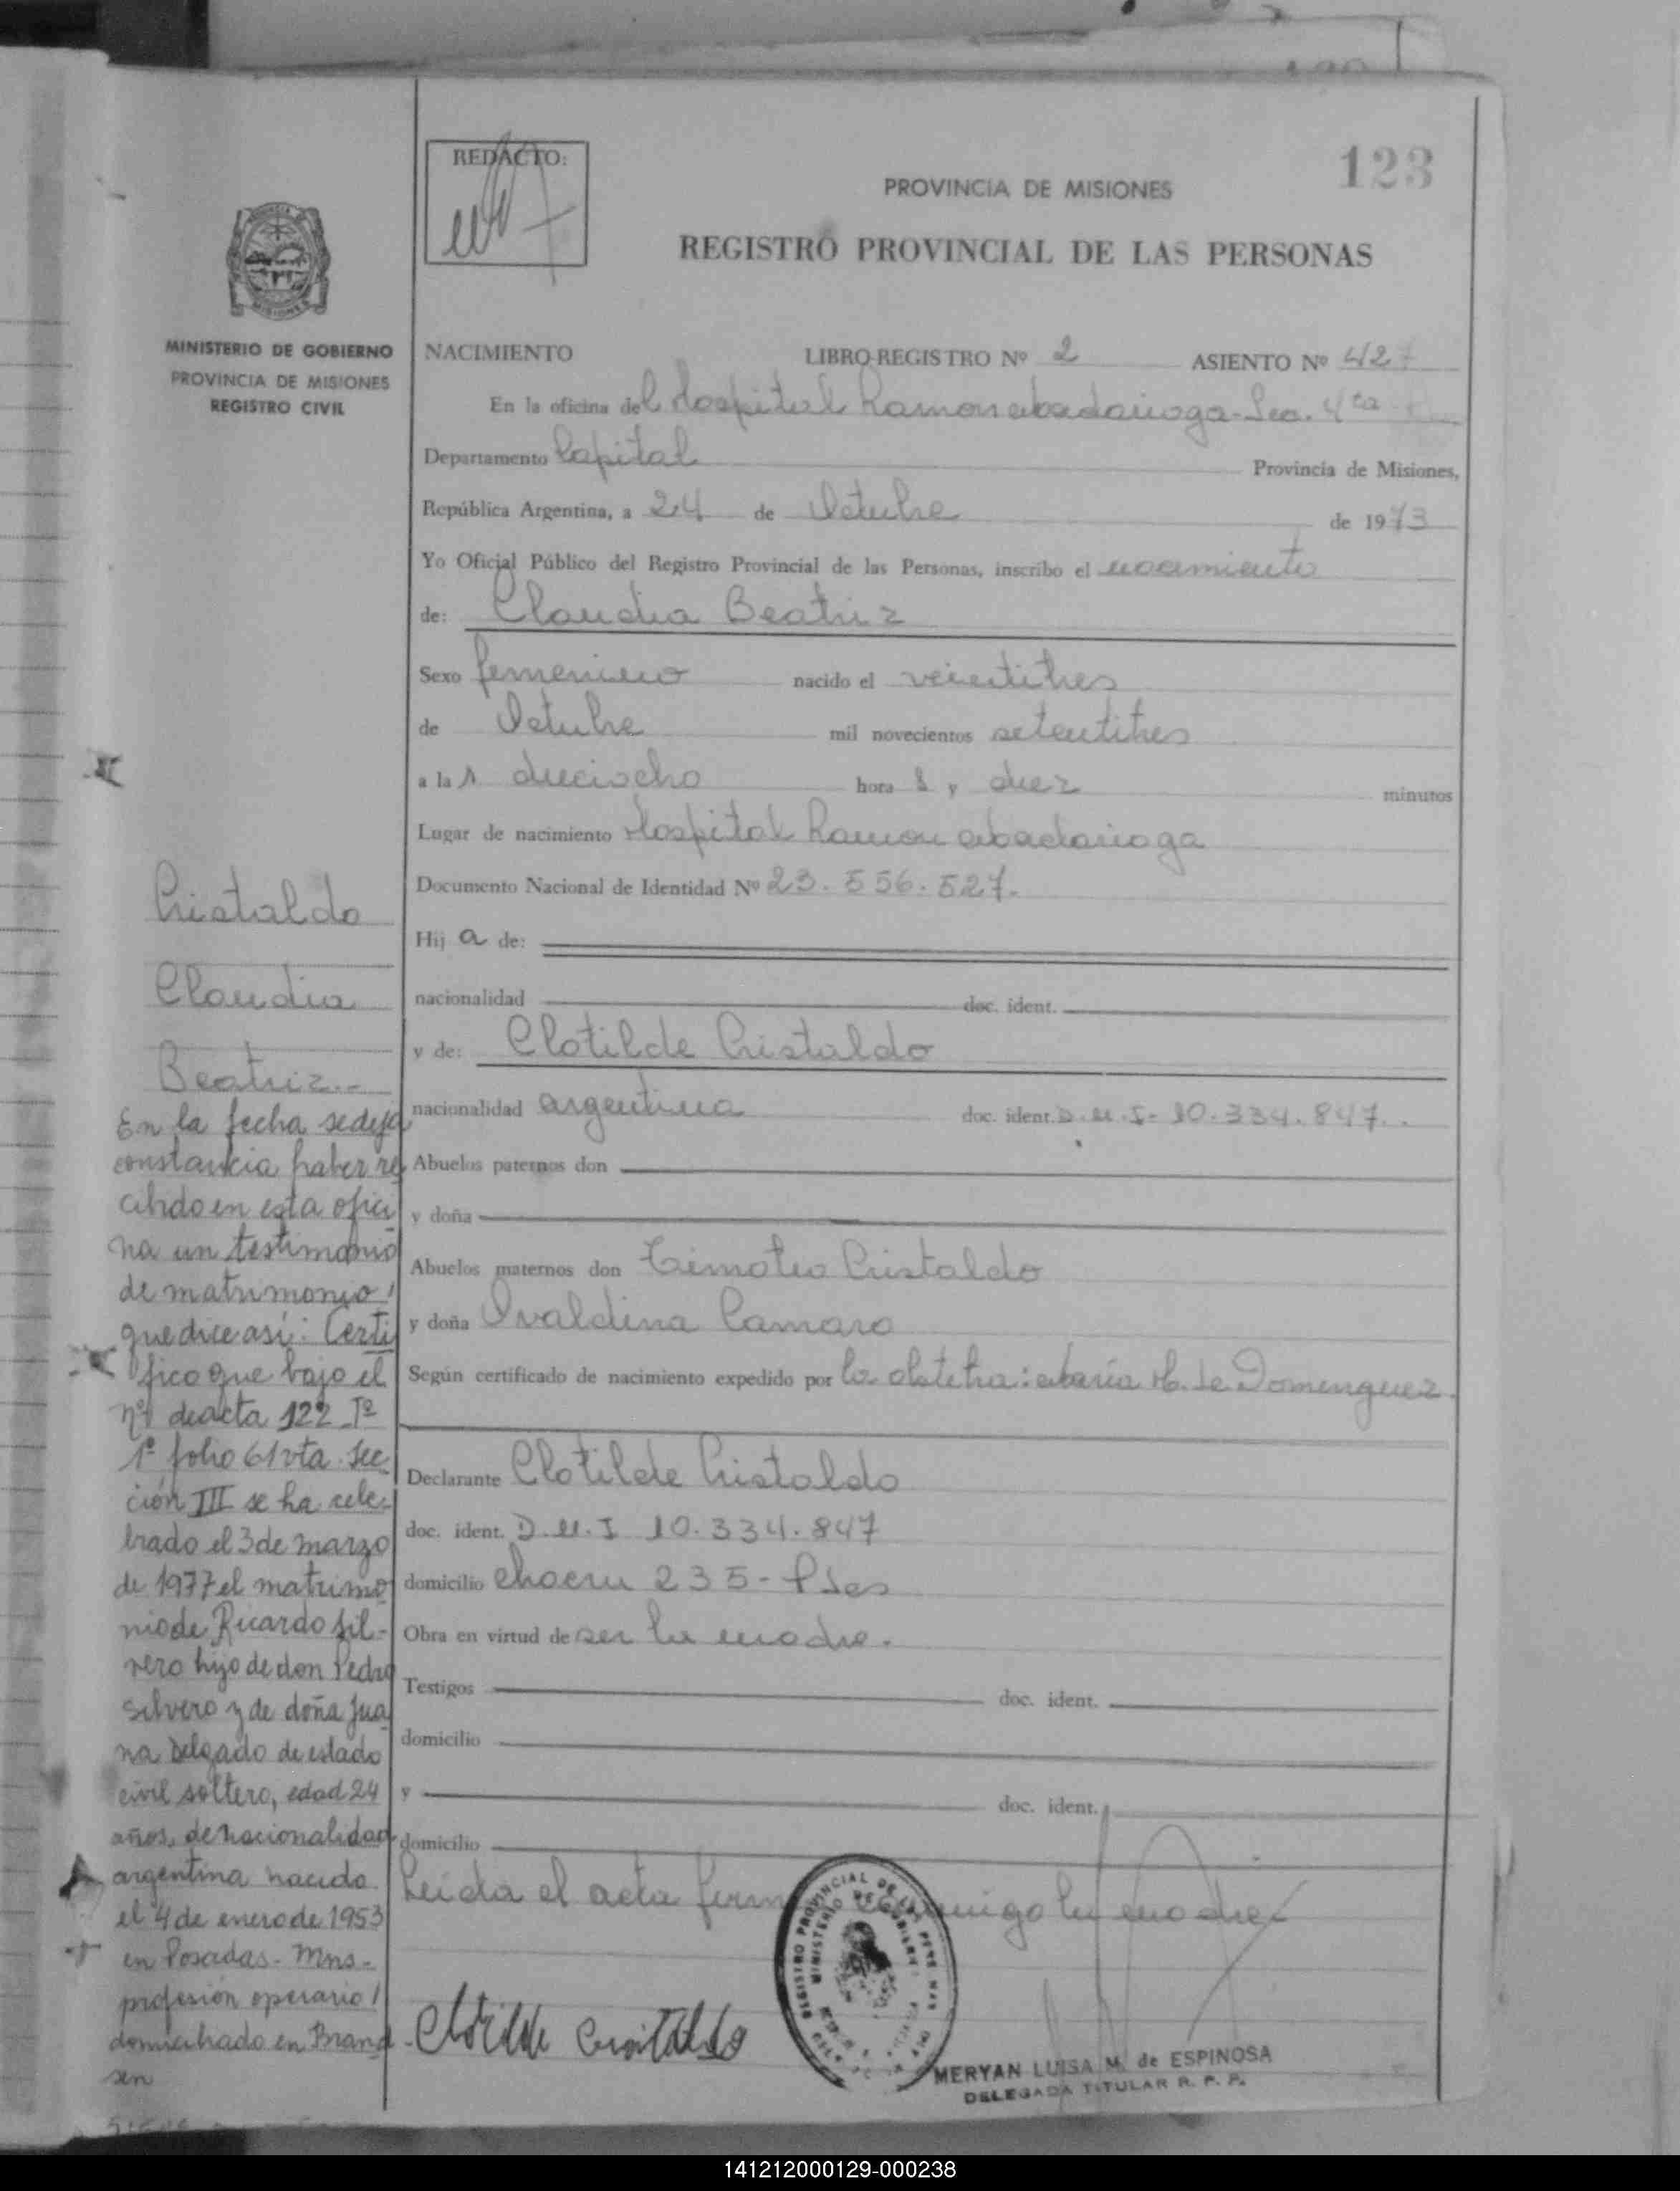 123
REDACTO:
PROVINCIA DE MISIONES
REGISTRO PROVINCIAL DE LAS PERSONAS
MINISTERIO DE GOBIERNO
PROVINCIA DE MISIONES
REGISTRO CIVIL
NACIMIENTO LIBRO-REGISTRO Nº 2 ASIENTO Nº 427
En la oficina del Hospital Ramon Madariaga - Sec. 4ta
Departamento Capital Provincia de Misiones,
República Argentina, a 24 de Octubre de 1973
Yo Oficial Público del Registro Provincial de las Personas, inscribo el nacimiento
de: Claudia Beatriz
Sexo femenino nacido el veintitres
de Octubre mil novecientos setentitres
a las dieciocho horas y diez minutos
Lugar de nacimiento Hospital Ramon Madariaga
Documento Nacional de Identidad Nº 23.556.527.
Hija de:
nacionalidad doc. ident.
y de: Clotilde Cristaldo
nacionalidad argentina doc. ident. D.N.I- 10.334.847.
Abuelos paternos don
y doña
Abuelos maternos don Timoteo Cristaldo
y doña Ovaldina Camaro
Según certificado de nacimiento expedido por la obstetra: María H. de Dominguez.
Declarante Clotilde Cristaldo
doc. ident. D.N.I 10.334.847
domicilio 235 - Pdas
Obra en virtud de ser la madre.
Testigos doc. ident.
domicilio
y doc. ident.
domicilio
Leida el acta conmigo la madre
Clotilde Cristaldo
MERYAN LUISA M. de ESPINOSA
DELEGADA TITULAR R. P. P.
Cristaldo
Claudia
Beatriz.-
En la fecha se deja
constancia haber re
cibido en esta ofici
na un testimonio
de matrimonio
que dice así: Certi
fico que bajo el
nº de acta 122 Tº
1º folio 61 vta. Sec
ción III se ha cele-
brado el 3 de marzo
de 1977 el matrimo
nio de Ricardo Sil-
vero hijo de don Pedro
Silvero y de doña Jua
na Delgado de estado
civil soltero, edad 24
años, de nacionalidad
argentina nacido
el 4 de enero de 1953
en Posadas - Mns-
profesión operario
domiciliado en Brand
sen
141212000129-000238